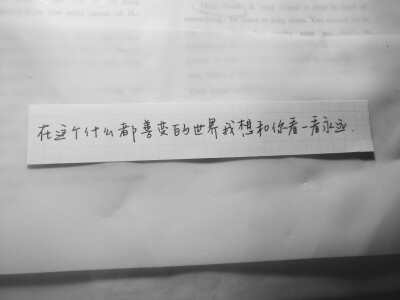 在这个什么都善变的世界我想和你看一看永远.